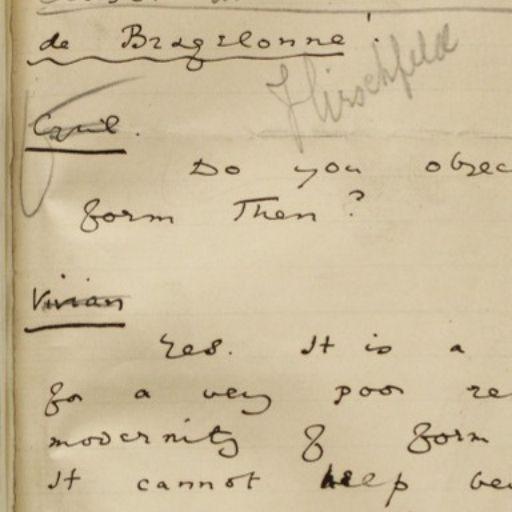 de Bragelonne'.
Hirschfeld
Cyril.
Do you objec
form Then?
Vivian
Yes. It is a
for a very poor re
modernity of form
It cannot help be